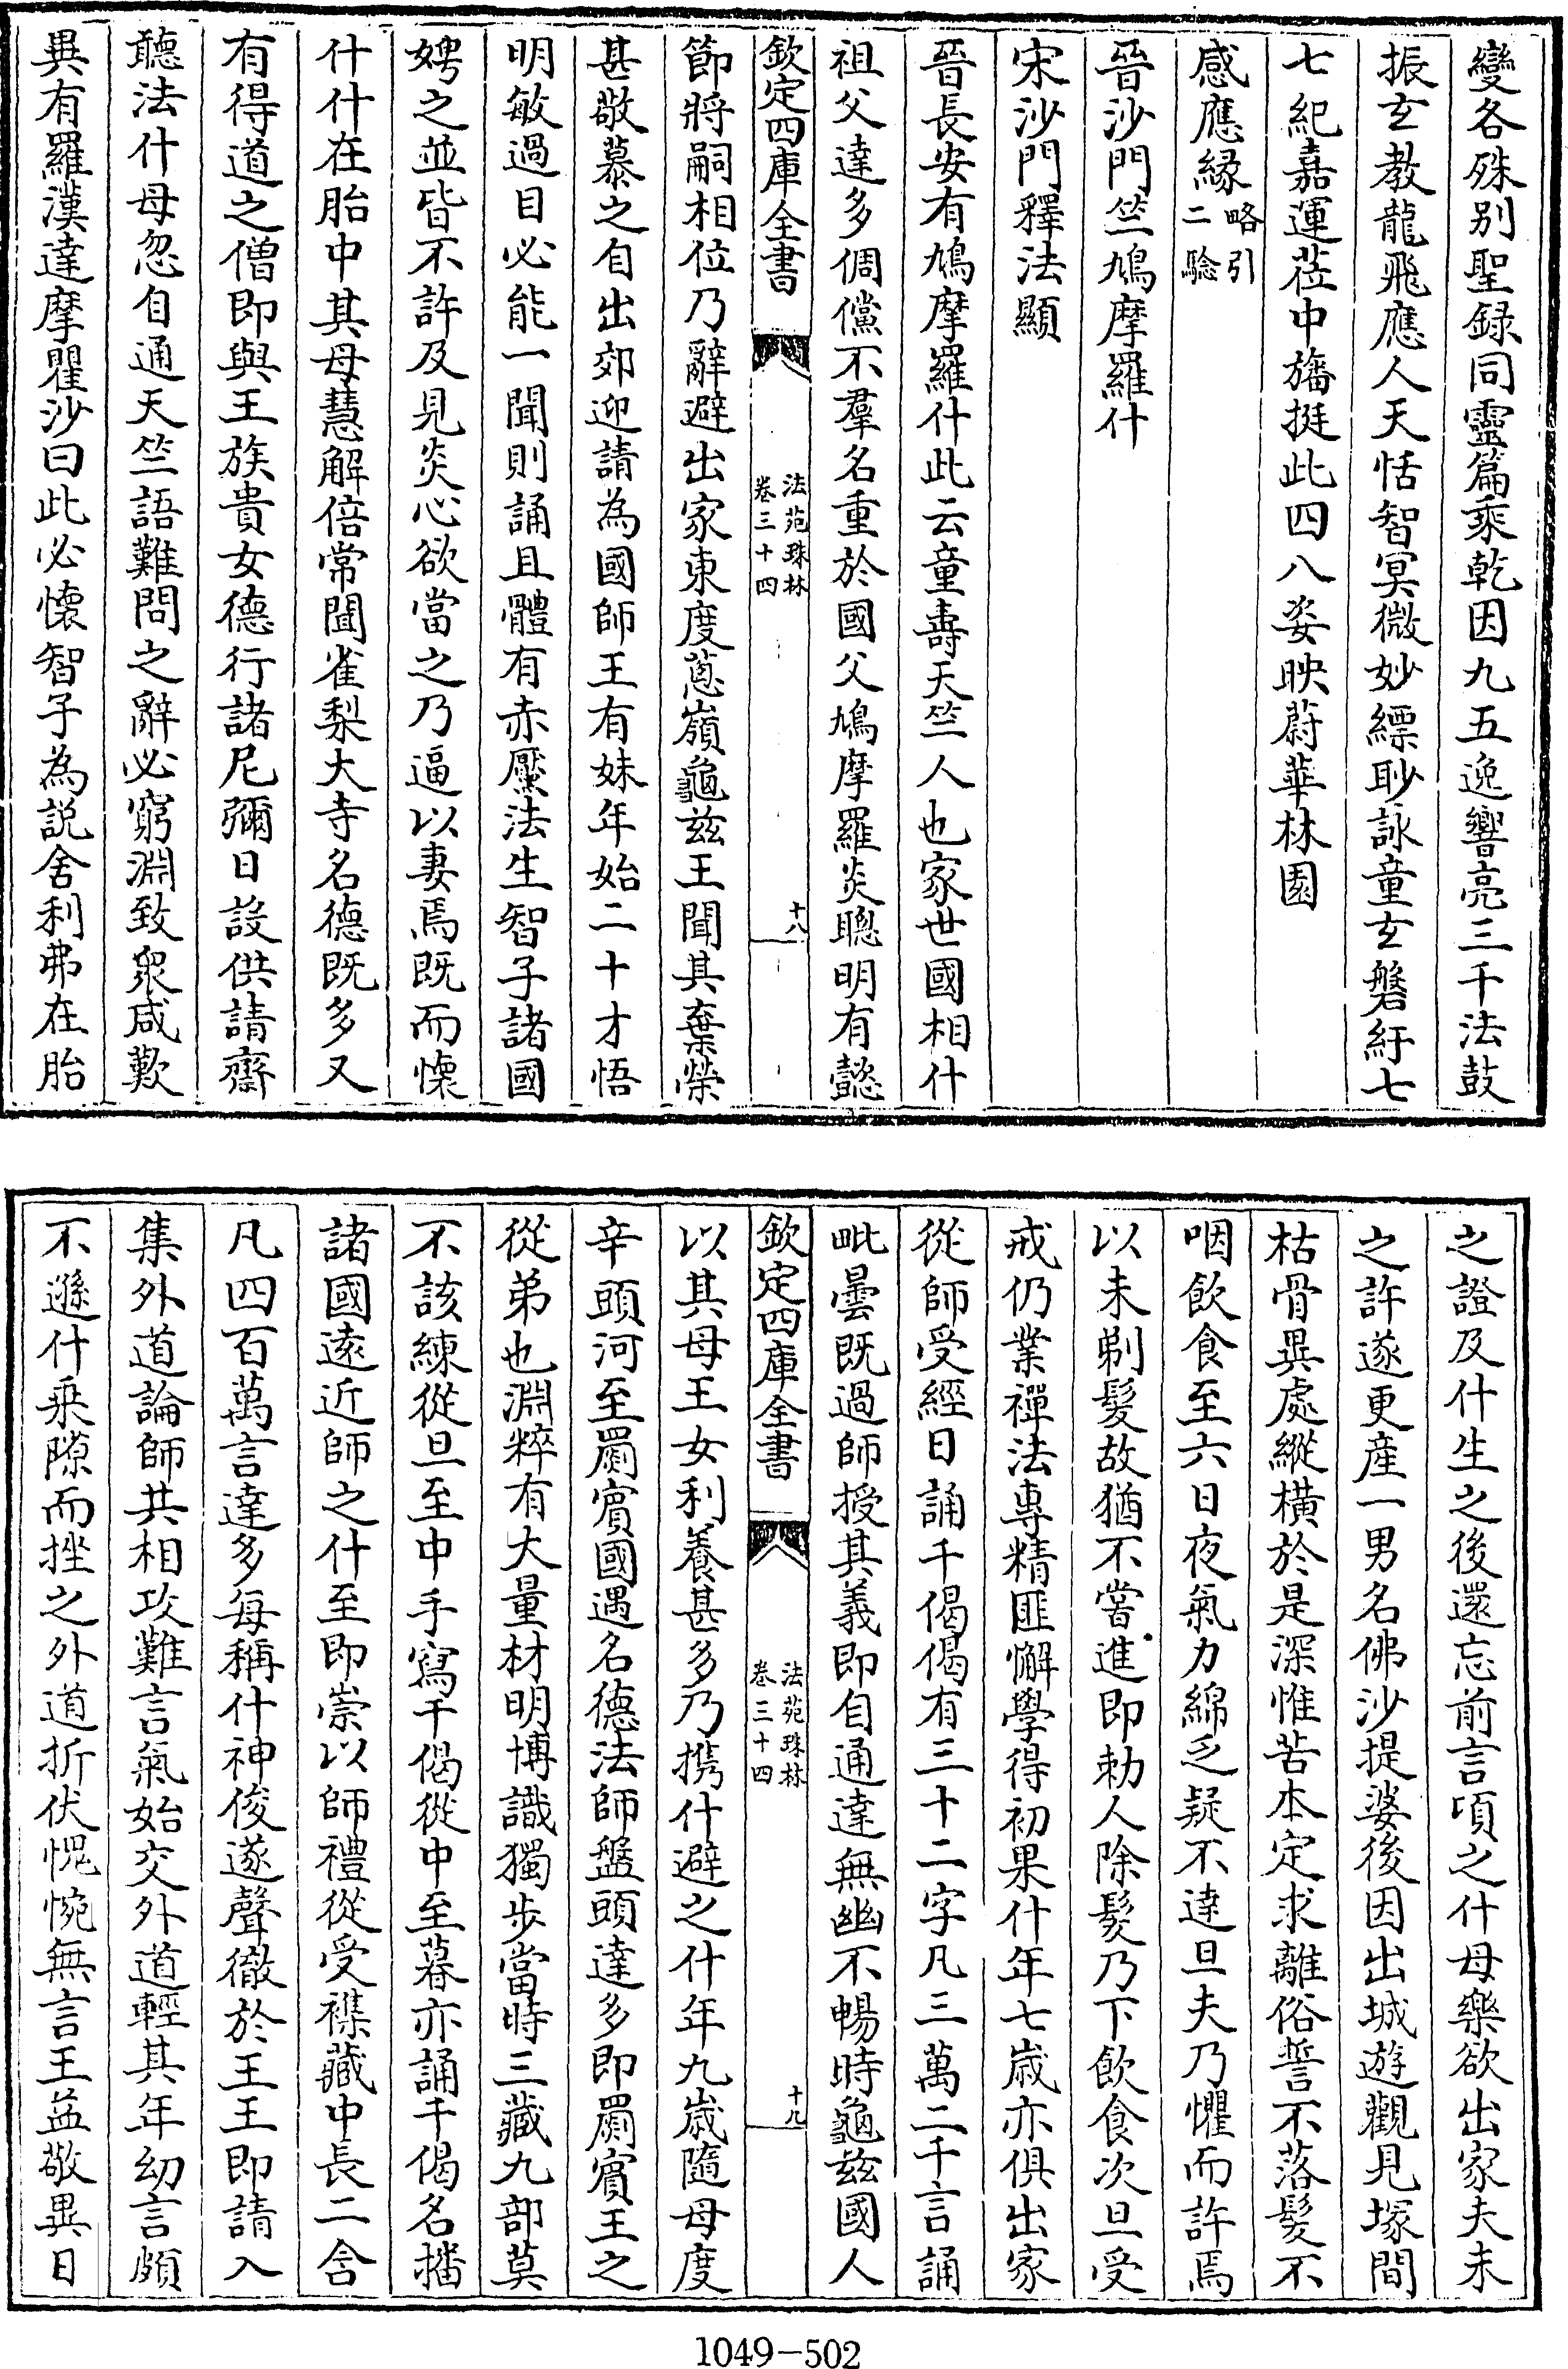 變各殊别聖録同靈篇乘乾因九五逸響亮三千法鼓
振玄教龍飛應人天恬智冥微妙縹眇詠童玄磐紆七
七紀嘉運莅中旛挺此四八姿映蔚華林園
感應緣略引二驗
晉沙門竺鳩摩羅什
宋沙門釋法顯
晉長安有鳩摩羅什此云童壽天竺人也家世國相什
祖父達多倜儻不羣名重於國父鳩摩羅炎聰明有懿
欽定四庫全書
法苑珠林
卷三十四
十八
節將嗣相位乃辭避出家東度蔥嶺龜兹王聞其棄榮
甚敬慕之自出郊迎請為國師王有妹年始二十才悟
明敏過目必能一聞則誦且體有赤黶法生智子諸國
娉之並皆不許及見炎心欲當之乃逼以妻焉既而懷
什什在胎中其母慧解倍常聞雀梨大寺名德既多又
有得道之僧即與王族貴女德行諸尼彌日設供請齋
聽法什母忽自通天竺語難問之辭必窮淵致衆咸歎
異有羅漢達摩瞿沙曰此必懷智子為説舍利弗在胎
之證及什生之後還忘前言頃之什母樂欲出家夫未
之許遂更産一男名佛沙提婆後因出城遊觀見塚間
枯骨異處縱橫於是深惟苦本定求離俗誓不落髮不
咽飲食至六日夜氣力綿乏疑不達旦夫乃懼而許焉
以未剃髮故猶不嘗進即勅人除髮乃下飲食次旦受
戒仍業禪法專精匪懈學得初果什年七歲亦俱出家
從師受經日誦千偈偈有三十二字凡三萬二千言誦
毗曇既過師授其義即自通達無幽不暢時龜兹國人
欽定四庫全書
法苑珠林
卷三十四
十九
以其母王女利養甚多乃携什避之什年九歲隨母度
辛頭河至罽賓國遇名德法師盤頭達多即罽賓王之
從弟也淵粹有大量材明博識獨步當時三藏九部莫
不該練從旦至中手寫千偈從中至暮亦誦千偈名播
諸國遠近師之什至即崇以師禮從受襍藏中長二含
凡四百萬言達多每稱什神俊遂聲徹於王王即請入
集外道論師共相攻難言氣始交外道輕其年幼言頗
不遜什乗隙而挫之外道折伏愧惋無言王益敬異日
1049-502